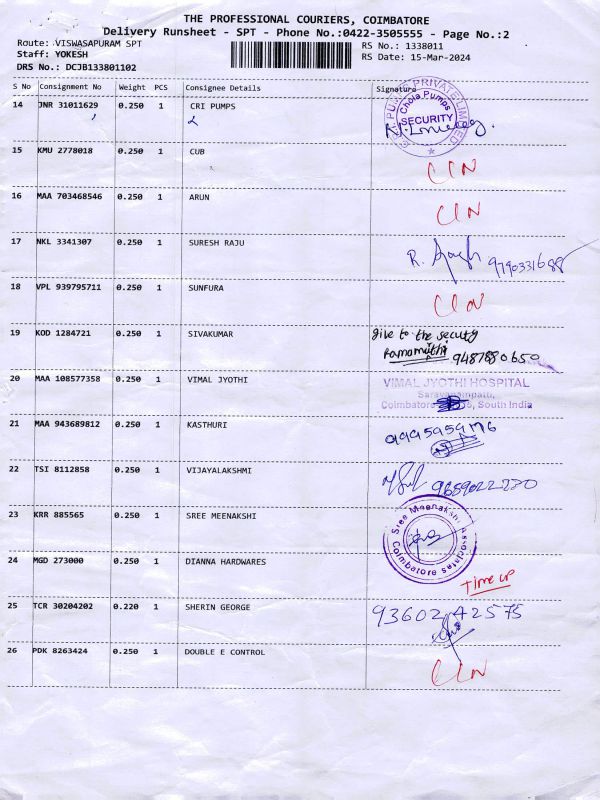 THE PROFESSIONAL COURIERS, COIMBATORE
Delivery Runsheet - SPT - Phone No.:0422-3505555 - Page No.:2
Route: VISWASAPURAM SPT RS No.: 1338011
Staff: YOKESH RS Date: 15-Mar-2024
DRS No.: DCJB133801102
S No Consignment No Weight PCS Consignee Details Signature
14 JNR 31011629 0.250 1 CRI PUMPS PRIVATE LIMITED Chola Pumps SECURITY
15 KMU 2778018 0.250 1 CUB CLN
16 MAA 703468546 0.250 1 ARUN CLN
17 NKL 3341307 0.250 1 SURESH RAJU R. 9790331688
18 VPL 939795711 0.250 1 SUNFURA CLN
19 KOD 1284721 0.250 1 SIVAKUMAR give to the security
Ramamuthi 9487880650
20 MAA 108577358 0.250 1 VIMAL JYOTHI VIMAL JYOTHI HOSPITAL
Saravanampatti,
Coimbatore South India
21 MAA 943689812 0.250 1 KASTHURI
22 TSI 8112858 0.250 1 VIJAYALAKSHMI 9859022230
23 KRR 885565 0.250 1 SREE MEENAKSHI Sree Meenakshi Associates Coimbatore
24 MGD 273000 0.250 1 DIANNA HARDWARES Time up
25 TCR 30204202 0.220 1 SHERIN GEORGE 9360242575
26 PDK 8263424 0.250 1 DOUBLE E CONTROL CLN